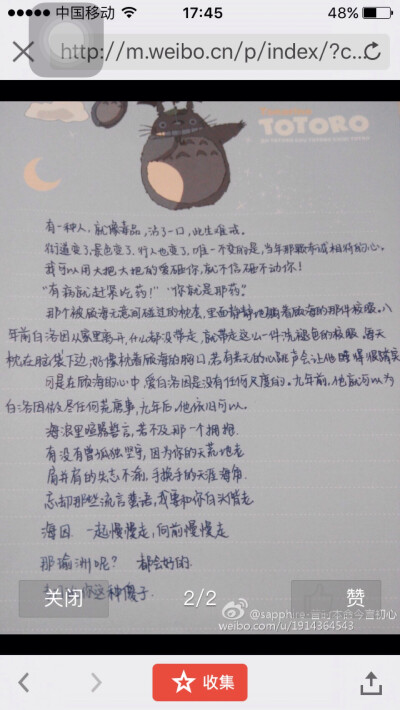 中国移动 17:45 48%
http://m.weibo.cn/p/index/?c...
TOTORO
有一种人,就像毒品,沾了一口,此生难戒。
街道变了,景色变了,行人也变了,唯一不变的是,当年那颗赤诚相待的心。
我可以用大把大把的爱砸你,就不信砸不动你!
"有病就赶紧吃药!" "你就是那药。"
那个被顾海无意间碰过的枕套,里面静静地躺着顾海的那件校服。八
年前白洛因从家里离开,什么都没带走,就带走这么一件洗褪色的校服,每天
枕在脑袋下边,好像枕着顾海的胸口,若有若无的心跳声会让他睡得很踏实
可是在顾海的心中,爱白洛因是没有任何尺度的。九年前,他就可以为
白洛因做尽任何荒唐事,九年后,他依旧可以。
海浪里喧嚣誓言,若不及那一个拥抱
有没有曾孤独坚守,因为你的天荒地老
肩并肩的矢志不渝,手挽手的天涯海角
忘却那些流言蜚语,我要和你白头偕老
海因 一起慢慢走,向前慢慢走
那瑜洲呢? 都会好的.
这种傻子.
关闭 2/2 赞
@sapphire-曾时本命今宣初心
weibo.com/u/1914364543
收集